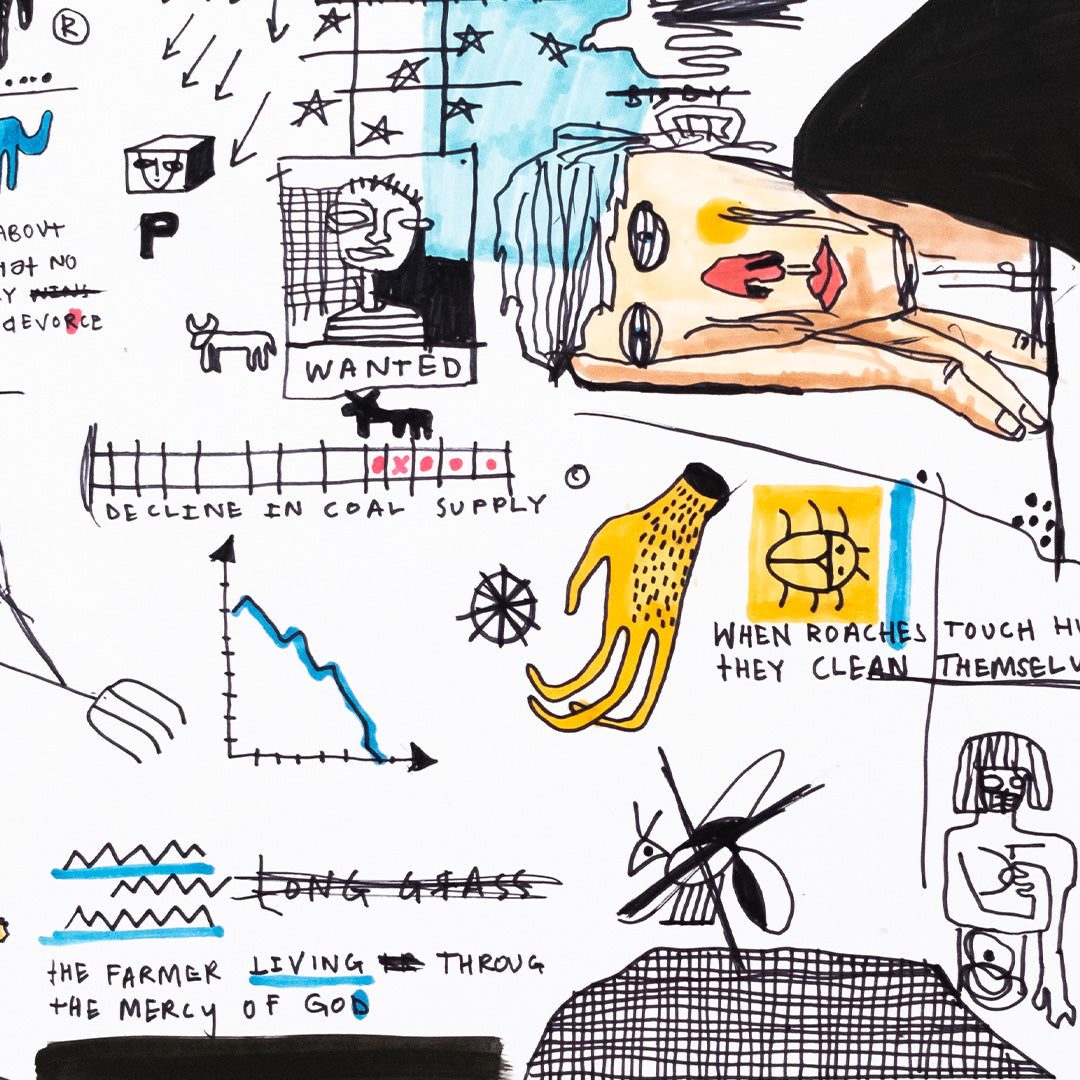 ®
BIBDY
P
ABOVT
HAT NO
Y
dEVORCE
WANTED
DECLINE IN COAL SUPPLY
WHEN ROACHES TOUCH HU
tHEY CLEAN THEMSELV
LONG GRASS
tHE FARMER LIVING THROUG
tHE MERCY OF GOD